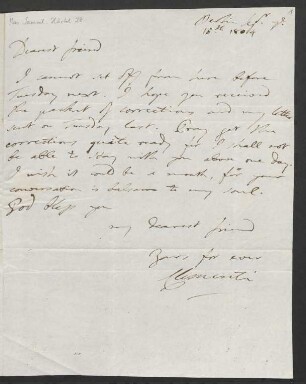 Berlin
15th 1804
Dearest friend
I cannot set off from here before
Tuesday next. I hope you received
the packet of corrections and my letter
sent on Tuesday last. Pray get the
corrections quite ready for I shall not
be able to stay with you above one day.
I wish it could be a month, for your
conversation is balsam to my soul.
God bless you
my dearest friend
Yours for ever
Clementi